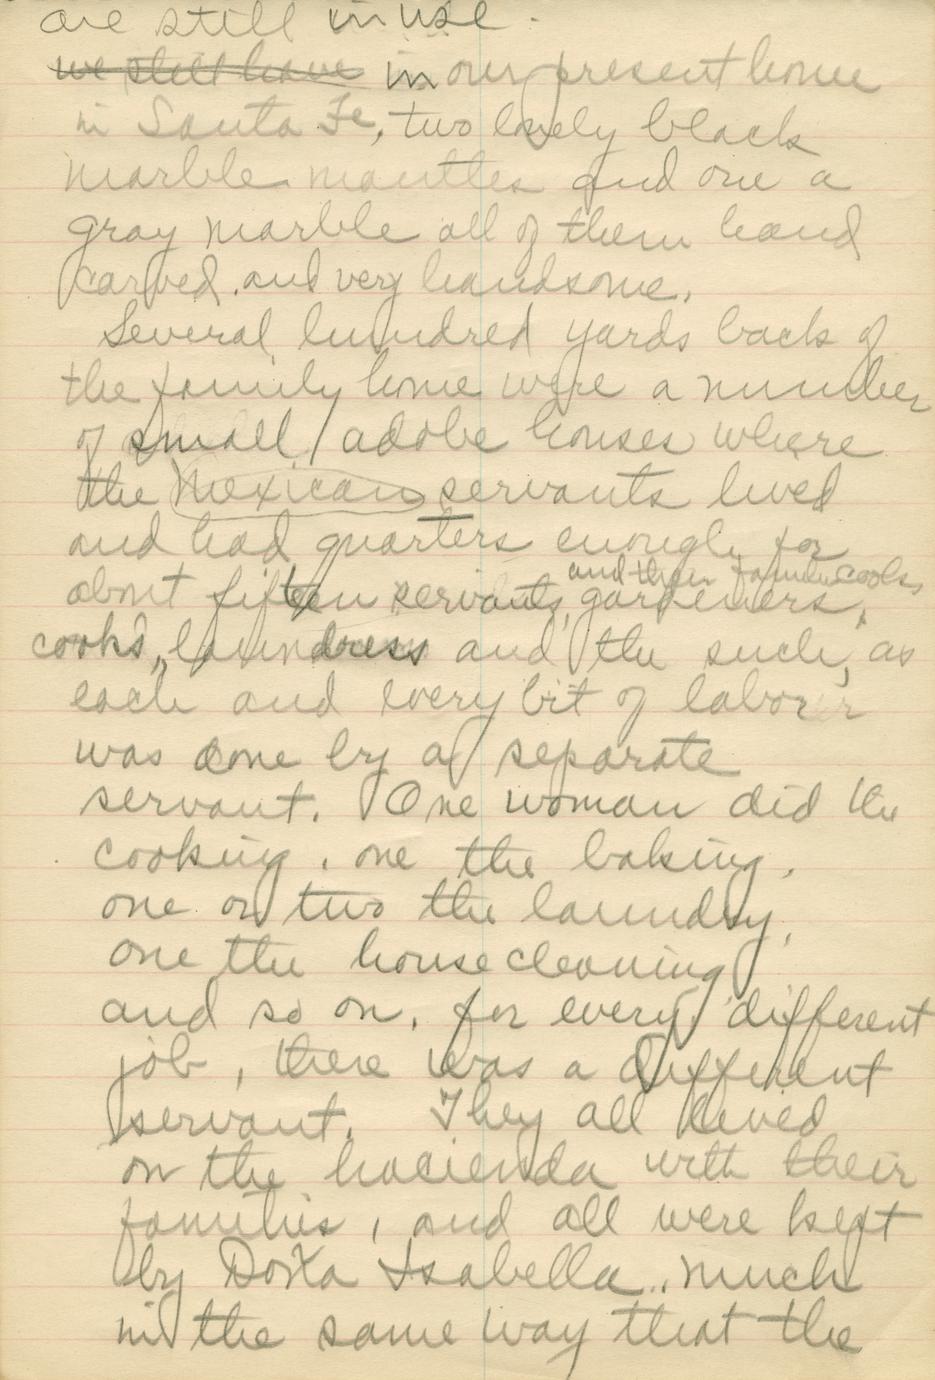 are still in use.
we still have in our present home
in Santa Fe, two lovely black
marble mantles and one a
gray marble all of them hand
carved and very handsome.
Several hundred yards back of
the family home were a number
of small adobe houses where
the Mexican servants lived
and had quarters enough for
and their families cooks,
about fifteen servants, gardeners,
cooks, laundress and the such, as
each and every bit of labor
was done by a separate
servant. One woman did the
cooking, one the baking,
one or two the laundry,
one the housecleaning
and so on, for every different
job, there was a different
servant. They all lived
on the hacienda with their
families, and all were kept
by Doña Isabella, much
in the same way that the